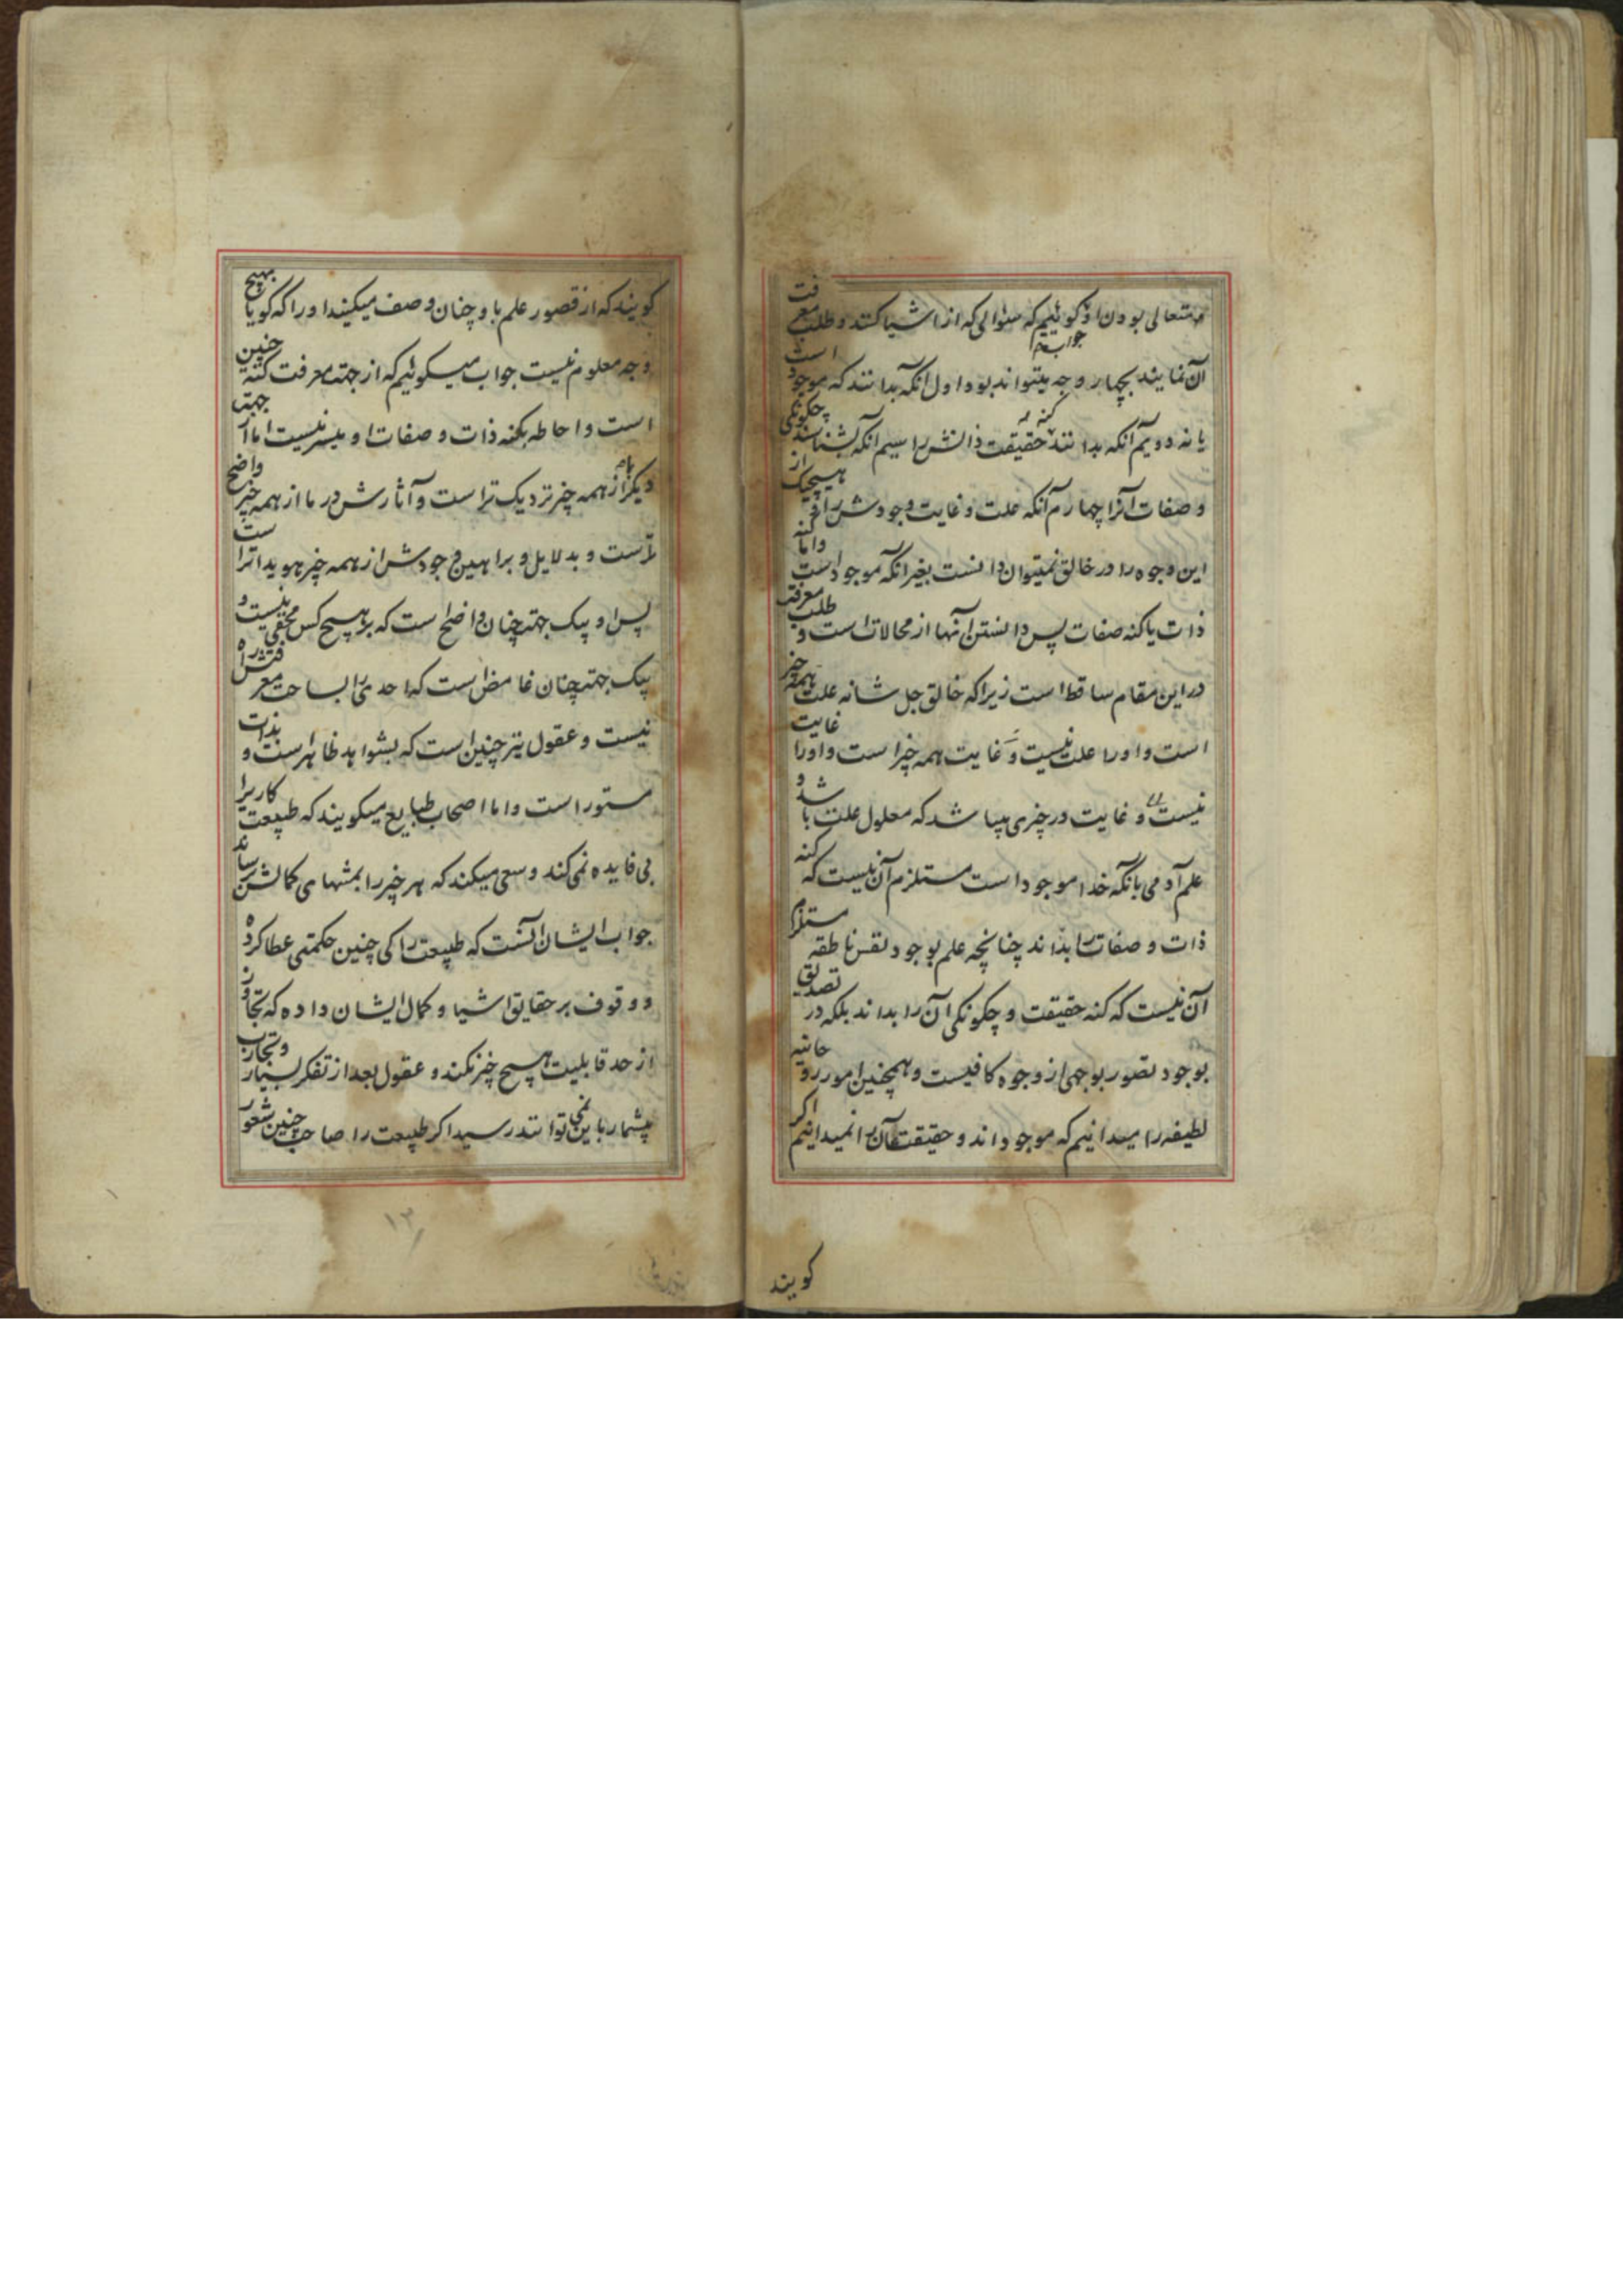 و متعالی بودن او کوئیم که سئوالی که از اشیا کنند و طلب معرفت
جواب
آن نمایند بچهار وجه میتواند بود اول انکه بدانند که موجود است
یا نه دویم آنکه بدانند کنه حقیقت ذاتش را سیم انکه بشناسند چکونکی
و صفات آنرا چهارم آنکه علت و غایت وجودش را و از هیچیک
این وجوه را در خالق نمیتوان دانست بغیر انکه موجود است واما کنه
ذات یا کنه صفات پس دانستن آنها از محالات است و طلب معرفت
در این مقام ساقط است زیرا که خالق جل شانه علت همه چیز
است و او را علت نیست و غایت همه چیز است و او را غایت
نیست و غایت در چیزی میباشد که معلول علت باشد و
علم آدمی بانکه خدا موجود است مستلزم آن نیست که کنه
ذات و صفات را بداند چنانچه علم بوجود نفس ناطقه مستلزم
آن نیست که کنه حقیقت و چکونکی آن را بداند بلکه در تصدیق
بوجود تصور بوجهی از وجوه کافیست و همچنین امور روحانیه
لطیفه را میدانیم که موجود اند و حقیقت آن را نمیدانیم اکر
کویند
کویند که از قصور علم باو چنان وصف میکنید او را که کویا بهیچ
وجه معلوم نیست جواب میکوئیم که از جهت معرفت کنه چنین
است و احاطه بکنه ذات و صفات او میسر نیست اما از جهت
دیکر از همه چیز نزدیک تر است و آثارش در ما از همه چیز واضح
تر است و بدلایل و براهین وجودش از همه چیز هویداتر است
پس او بیک جهت چنان واضح است که بر هیچ کس مخفی نیست و
بیک جهت چنان غامض است که احدی را بساحت معرفتش راه
نیست و عقول نیز چنین است که بشواهد ظاهر است و بذات
مستور است و اما اصحاب طبایع میکویند که طبیعت کاریرا
بی فایده نمی کند و سعی میکند که هر چیز را بمنتهای کمالش رساند
جواب ایشان آنست که طبیعت را کی چنین حکمتی عطا کرده
و وقوف بر حقایق اشیا و کمال ایشان داده که تجاوز
از حد قابلیت هیچ چیز نکند و عقول بعد از تفکر بسیار و تجارب
بیشمار باین نمی توانند رسید اکر طبیعت را صاحب چنین شعور
۱۲